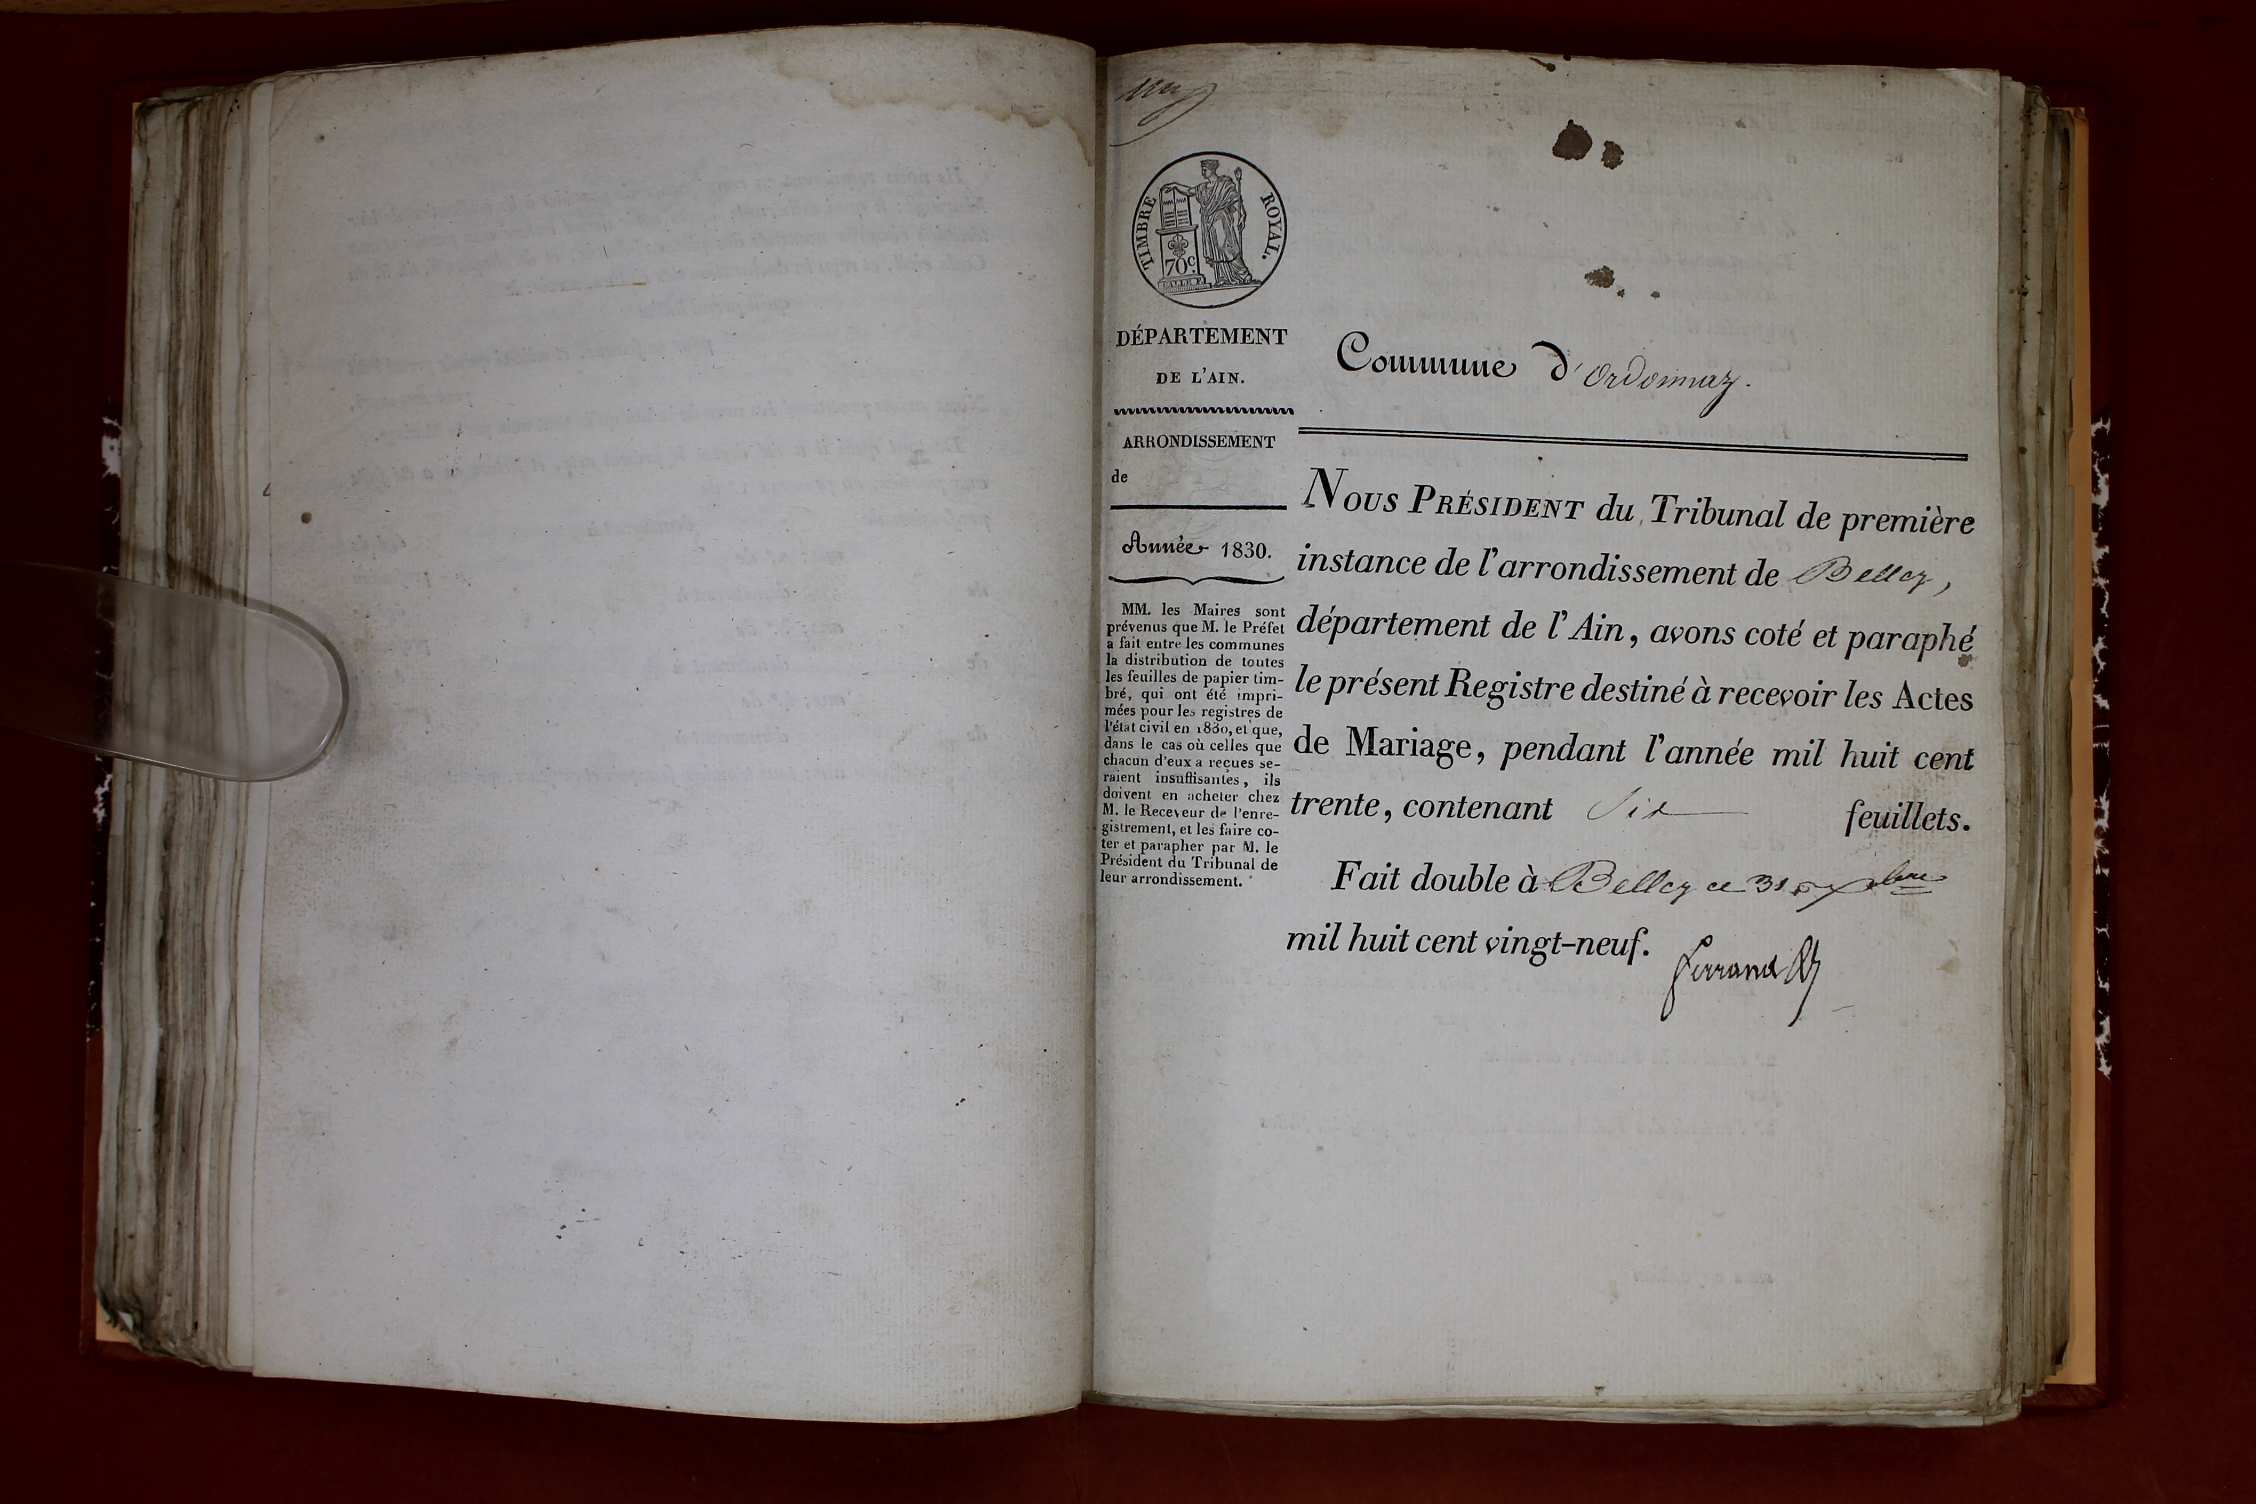 TIMBRE ROYAL.
70c.
DÉPARTEMENT
DE L'AIN.
ARRONDISSEMENT
de
Année 1830.
MM. les Maires sont
prévenus que M. le Préfet
a fait entre les communes
la distribution de toutes
les feuilles de papier tim-
bré, qui ont été impri-
mées pour les registres de
l'état civil en 1830, et que,
dans le cas où celles que
chacun d'eux a reçues se-
raient insuffisantes, ils
doivent en acheter chez
M. le Receveur de l'enre-
gistrement, et les faire co-
ter et parapher par M. le
Président du Tribunal de
leur arrondissement.
Commune d'Ordonnaz.
NOUS PRÉSIDENT du Tribunal de première
instance de l'arrondissement de Belley,
département de l'Ain, avons coté et paraphé
le présent Registre destiné à recevoir les Actes
de Mariage, pendant l'année mil huit cent
trente, contenant Six feuillets.
Fait double à Belley ce 31 Xbre
mil huit cent vingt-neuf.
Ferrand